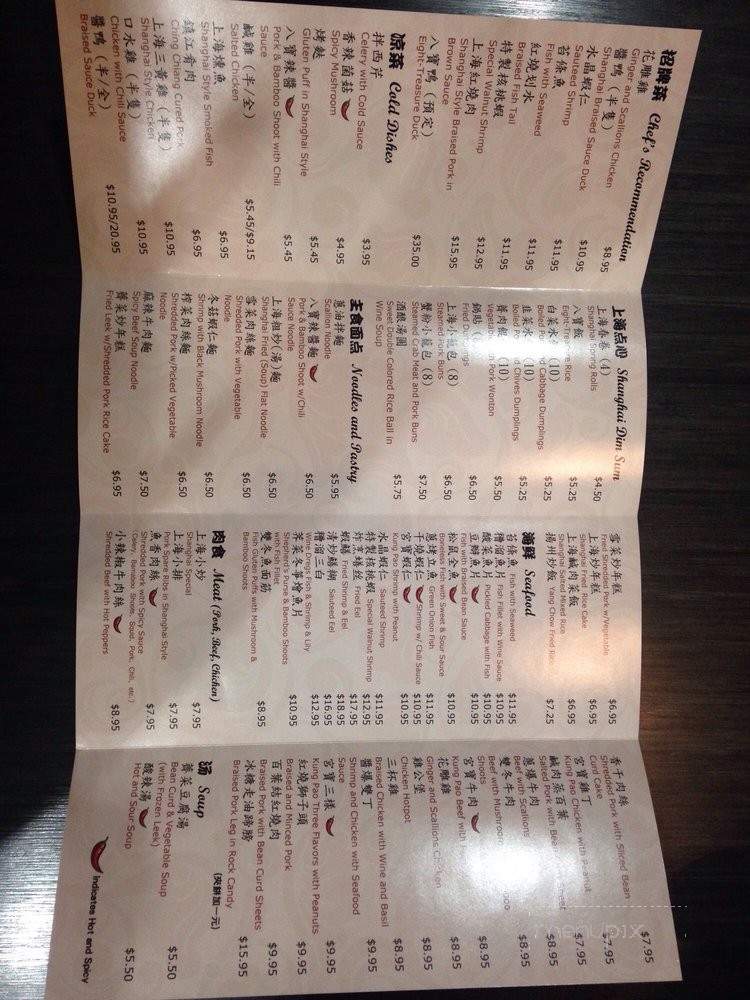 招牌菜 Chef's Recommendation
花雕雞 $8.95
Ginger and Scallions Chicken
醬鴨 (半隻) $10.95
Shanghai Braised Sauce Duck
水晶蝦仁 $10.95
Sauteed Shrimp
苔條魚 $11.95
Fish with Seaweed
紅燒划水 $11.95
Braised Fish Tail
特製核桃蝦 $12.95
Special Walnut Shrimp
上海紅燒肉 $15.95
Shanghai Style Braised Pork in
Brown Sauce
八寶鴨 (預定) $35.00
Eight-Treasure Duck
涼菜 Cold Dishes
拌西芹 $3.95
Celery with Cold Sauce
香辣菌菇 $4.95
Spicy Mushroom
烤麩 $5.45
Gluten Puff in Shanghai Style
八寶辣醬 $5.45
Pork & Bamboo Shoot with Chili
Sauce
鹹雞 (半/全) $5.45/$9.15
Salted Chicken
上海燻魚 $6.95
Shanghai Style Smoked Fish
鎮江肴肉 $6.95
Ching Chiang Cured Pork
上海三黃雞 (半隻) $10.95
Shanghai Style Chicken
口水雞 (半隻) $10.95
Chicken with Chili Sauce
醬鴨 (半/全) $10.95/20.95
Braised Sauce Duck
上海点心 Shanghai Dim Sum
上海春卷 (4) $4.50
Shanghai Spring Rolls
八寶飯 $5.25
Eight-Treasure Rice
白菜水 (10) $5.25
Cabbage Dumplings
韭菜水 (10) $5.25
Chives Dumplings
薺肉餛 (10) $5.50
Pork Wonton
鍋貼 $6.50
上海小籠包 (8) $6.50
Steamed Pork Buns
蟹粉小籠包 (8) $7.50
Steamed Crab Meat and Pork Buns
酒釀湯圓 $5.75
Sweet Double Colored Rice Ball in
Wine Soup
主食面点 Noodles and Pastry
蔥油拌麵 $5.95
Scallion Noodle
八寶辣醬麵 $6.50
Pork & Bamboo Shoot w/Chili
Sauce Noodle
上海粗炒(湯)麵 $6.50
Shanghai Fried (Soup) Flat Noodle
雪菜肉絲麵 $6.50
Shredded Pork with Vegetable
Noodle
冬菇蝦仁麵 $6.50
Shrimp with Black Mushroom Noodle
榨菜肉絲麵 $6.50
Shredded Pork w/Picked Vegetable
Noodle
麻辣牛肉麵 $7.50
Spicy Beef Soup Noodle
薺菜炒年糕 $6.95
Fried Leek w/Shredded Pork Rice Cake
雪菜炒年糕 $6.95
Fried Shredded Pork w/Vegetable
上海炒年糕 $6.95
Shanghai Fried Rice Cake
上海鹹肉菜飯 $6.95
Shanghai Salted Mixed Rice
揚州炒飯 Yang Chow Fried Rice $7.25
海鮮 Seafood
苔條魚 Fish with Seaweed $11.95
糟溜魚片 Fish Fillet with Wine Sauce $10.95
酸菜魚片 Pickled Cabbage with Fish $10.95
豆瓣魚 $10.95
Fish with Braised Bean Sauce
松鼠全魚 $10.95
Boneless Fish with Sweet & Sour Sauce
蔥烤立魚 Green Onion Fish $11.95
干燒蝦仁 Shrimp w/ Chili Sauce $10.95
宮寶蝦仁 $10.95
Kung Pao Shrimp with Peanut
水晶蝦仁 Sauteed Shrimp $11.95
特製核桃蝦 Special Walnut Shrimp $12.95
炸烹鱔絲 Fried Eel $17.95
蝦鱔 Fried Shrimp & Eel $18.95
清炒鱔糊 Sauteed Eel $16.95
糟溜三白 $12.95
Wine Dressy Fish & Shrimp & Lily
薺菜冬筍燴魚片 $10.95
Shepherd's Purse & Bamboo Shoots
with Fish Fillet
雙冬魚面筋 $8.95
Fish Gluten Puffs with Mushroom &
Bamboo Shoots
肉食 Meat (Pork, Beef, Chicken)
上海小炒 $7.95
Shanghai Special
上海小排 $7.95
Pork Spare Ribs in Shanghai Style
魚香肉絲 $7.95
Shredded Pork with Spicy Sauce
小辣椒牛肉絲 $8.95
Shredded Beef with Hot Peppers
香干肉絲 $7.95
Shredded Pork with Sliced Bean
Curd Cake
宮寶雞丁 $7.95
Kung Pao Chicken with Peanut
鹹肉蒸百葉 $8.95
Salted Pork with Bean
蔥爆牛肉 $8.95
Beef with Scallions
雙冬牛肉 $8.95
Beef with Mushroom
Shoots
宮寶牛肉 $8.95
Kung Pao Beef with
花雕雞 $8.95
Ginger and Scallions Chicken
雞公堡 $8.95
Chicken Hotpot
三杯雞 $8.95
Braised Chicken with Wine and Basil
醬爆雙丁 $9.95
Shrimp and Chicken with Seafood
Sauce
宮寶三樣 $9.95
Kung Pao Three Flavors with Peanuts
紅燒獅子頭 $9.95
Braised and Minced Pork
百葉結紅燒肉 $9.95
Braised Pork with Bean Curd Sheets
冰糖走油蹄膀 (夾餅加一元) $15.95
Braised Pork Leg in Rock Candy
湯 Soup
薺菜豆腐湯 $5.50
Bean Curd & Vegetable Soup
(with Frozen Leek)
酸辣湯 $5.50
Hot and Sour Soup
Indicates Hot and Spicy
menupix